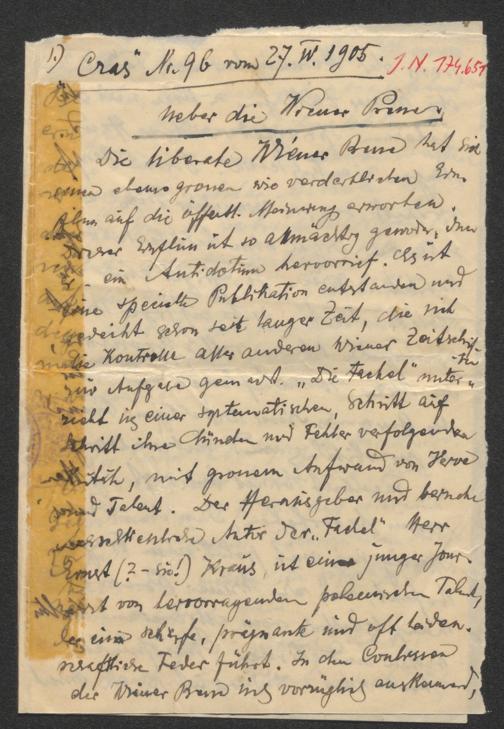 1.) „Čas" Nr. 96 vom 27. IV. 1905. J.N. 174.651
Ueber die Wiener Presse.
Die liberale Wiener Presse hat sich
einen ebenso grossen wie verderblichen Ein-
fluss auf die öffentl. Meinung erworben.
Dieser Einfluss ist so allmächtig geworden, dass
ein Antidotum hervorrief. Es ist
eine specielle Publikation entstanden und
gedeiht schon seit langer Zeit, die sich
die Kontrolle aller anderen Wiener Zeitschrif-
ten
zur Aufgabe gemacht. „Die Fackel" unter-
zieht sie einer systematischen, Schritt auf
Schritt ihre Sünden und Fehler verfolgenden
Kritik, mit grossem Aufwand von Verve
und Talent. Der Herausgeber und beinahe
ausschliessliche Autor der „Fackel" Herr
Ernst (? – sic!) Kraus, ist ein junger Jour-
nalist von hervorragendem polemischen Talent,
der eine scharfe, prägnante und oft leiden-
schaftliche Feder führt. In den Coulissen
der Wiener Presse sich vorzüglich auskennend,